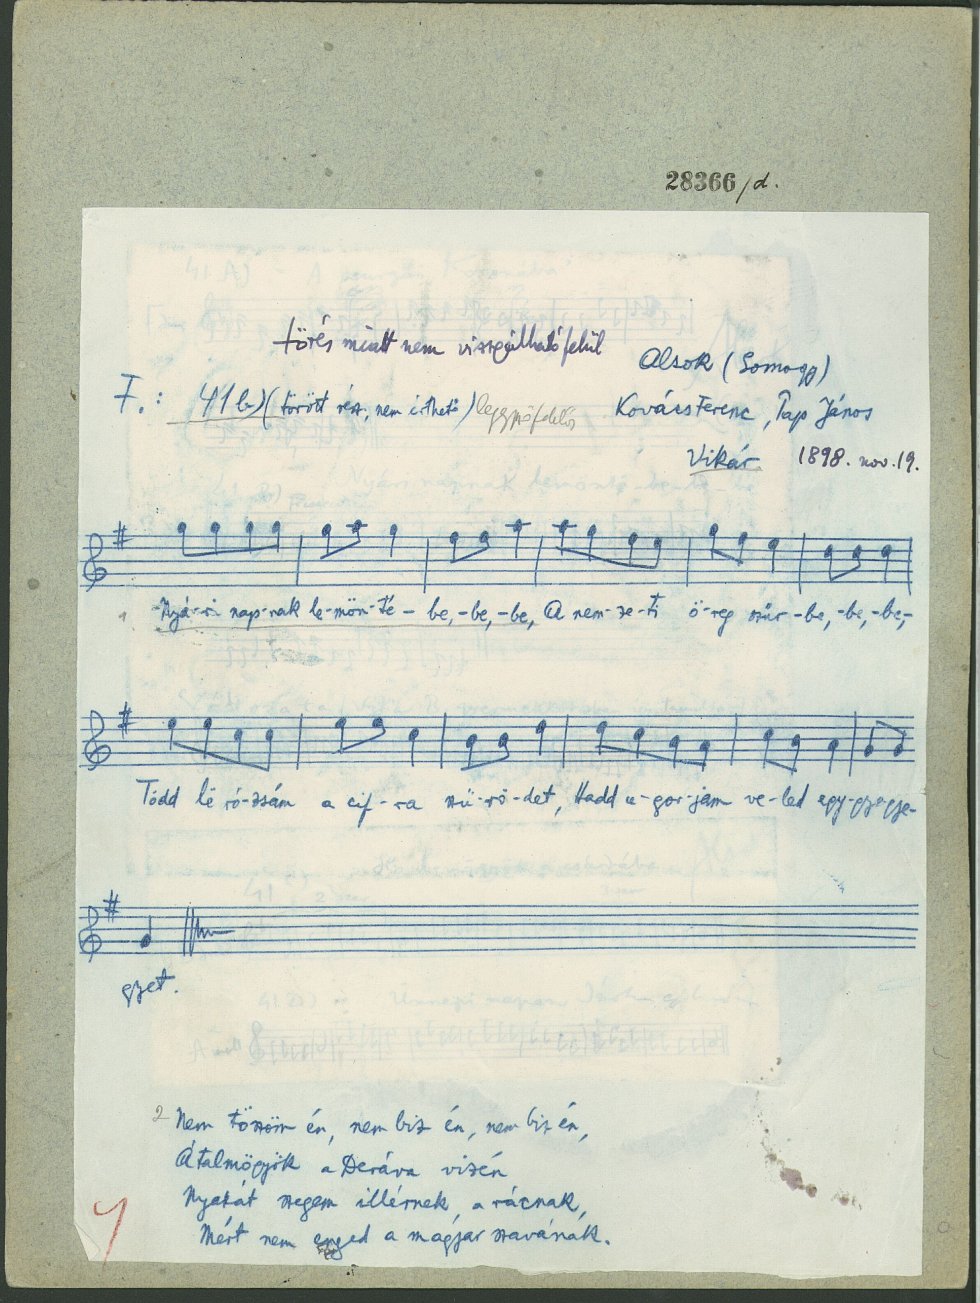 28366/d.
törés miatt nem vizsgálható felül
Alsok (Somogy)
F.: 41 b) (törött rész, nem érthető)
Kovács Ferenc, Pap János
Vikár 1898. nov. 19.
1 Nyá-ri nap-nak le-mön-té - be, -be, -be, A nem-ze-ti ö-reg szűr-be, -be, -be,-
Tödd lë ró-zsám a cif-ra szü-rö-det, Hadd u-gor-jam ve-led egy-gye-gye-
gyet.
2 Nem töszöm én, nem bisz én, nem bisz én,
Átalmögyök a Deráva vizén
Nyakát szegem illérnek, a rácnak,
Mért nem enged a magyar szavának.